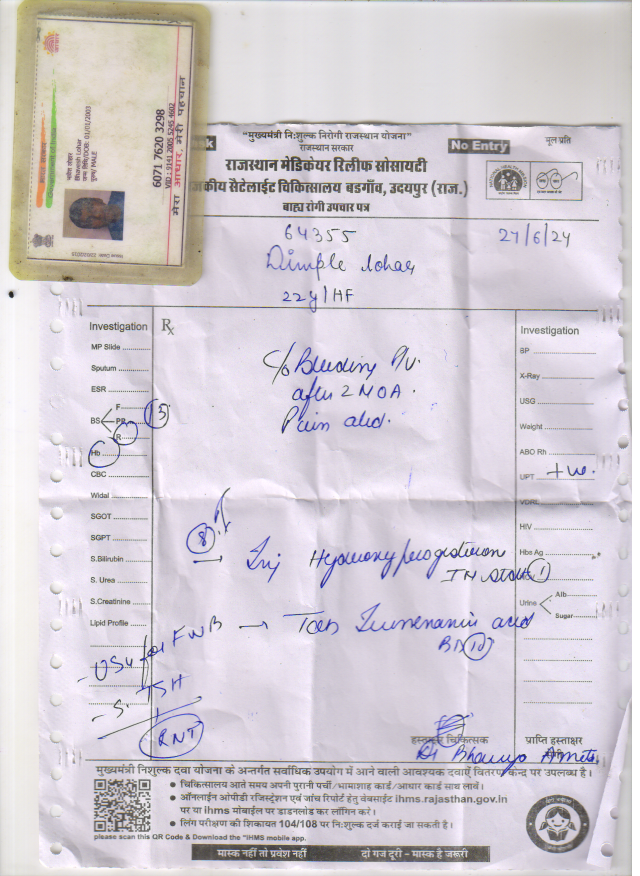 भारत सरकार
Government of India
भावेश लोहार
Bhavesh Lohar
जन्म तिथि/DOB: 01/01/2003
पुरुष/ MALE
6071 7620 3298
मेरा आधार, मेरी पहचान
"मुख्यमंत्री निःशुल्क निरोगी राजस्थान योजना"
राजस्थान सरकार
No Entry
मूल प्रति
राजस्थान मेडिकेयर रिलीफ सोसायटी
राजकीय सैटेलाईट चिकित्सालय बडगाँव, उदयपुर (राज.)
बाह्य रोगी उपचार पत्र
64355
27/6/24
Dimple Lohar
22y/HF
Investigation
Rx
MP Slide
Sputum
ESR
BS F
PP
R
15
Hb
CBC
Widal
SGOT
SGPT
S.Bilirubin
S. Urea
S.Creatinine
Lipid Profile
c/o Bleeding P/V.
after 2 MOA.
Pain abd.
Investigation
BP
X-Ray
USG
Weight
ABO Rh
UPT +ve.
VDRL
HIV
Hbs Ag
Urine Alb
Sugar
8
→ Inj Hydroxyprogesteron
IM stat 1
→ Tab Tranexamic acid
BD 10
- USG for FWB
- S. TSH
RNT
हस्ताक्षर चिकित्सक
प्राप्ति हस्ताक्षर
मुख्यमंत्री निशुल्क दवा योजना के अन्तर्गत सर्वाधिक उपयोग में आने वाली आवश्यक दवाऐं वितरण केन्द्र पर उपलब्ध है।
चिकित्सालय आते समय अपनी पुरानी पर्ची/भामाशाह कार्ड/आधार कार्ड साथ लावें।
ऑनलाईन ओपीडी रजिस्ट्रेशन एवं जांच रिपोर्ट हेतु वेबसाईट ihms.rajasthan.gov.in
पर या ihms मोबाईल पर डाउनलोड कर लॉगिन करें।
लिंग परीक्षण की शिकायत 104/108 पर निःशुल्क दर्ज कराई जा सकती है।
please scan this QR Code & Download the "IHMS mobile app.
मास्क नहीं तो प्रवेश नहीं
दो गज दूरी - मास्क है जरूरी